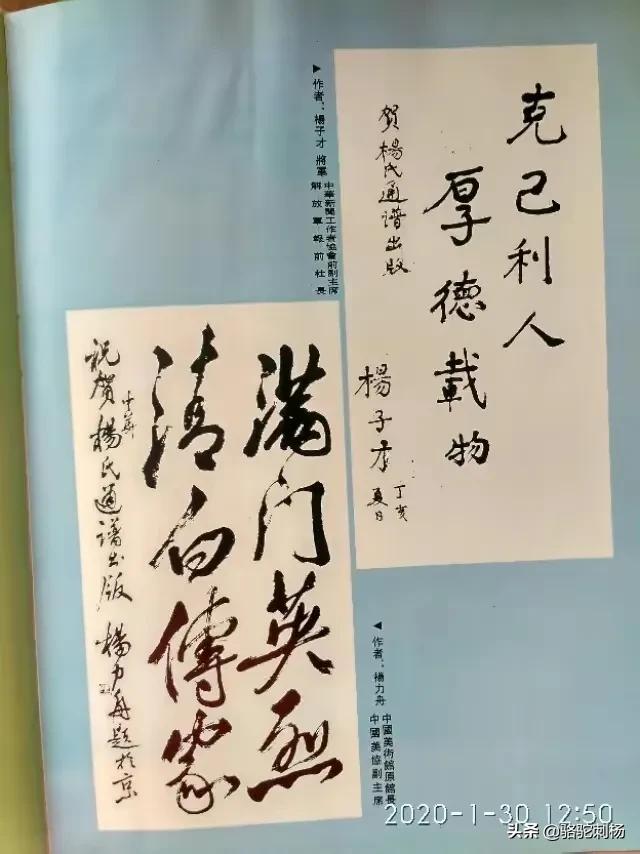 克己利人
厚德載物
賀楊氏通谱出版
楊子才
丁亥
夏日
▶作者：楊子才 將軍
中華新聞工作者協會前副主席
解放軍報前社長
满门英烈
清白傳家
祝賀楊氏通谱出版 楊力舟題於京
十年
◀作者：楊力舟
中國美術館原館長
中國美協副主席
2020-1-30 12:50
头条 @骆驼刺杨